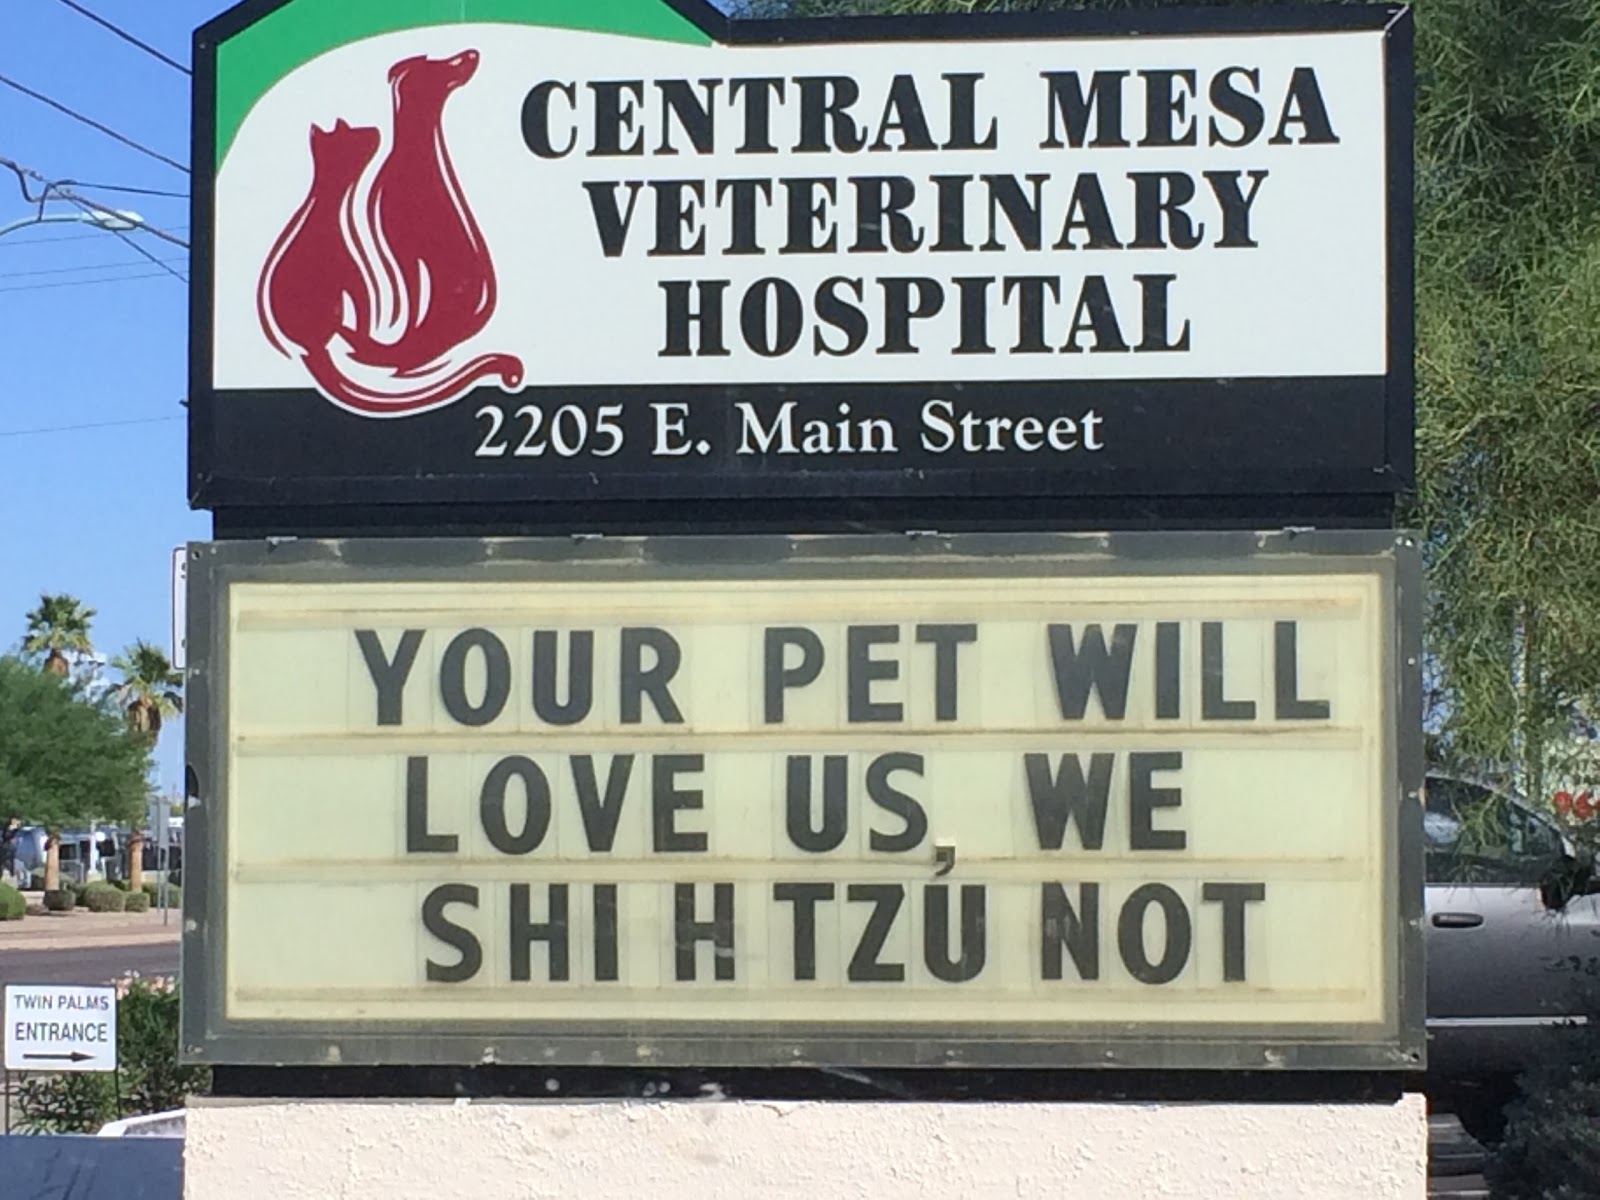 CENTRAL MESA
VETERINARY
HOSPITAL
2205 E. Main Street
YOUR PET WILL
LOVE US, WE
SHI H TZU NOT
TWIN PALMS
ENTRANCE